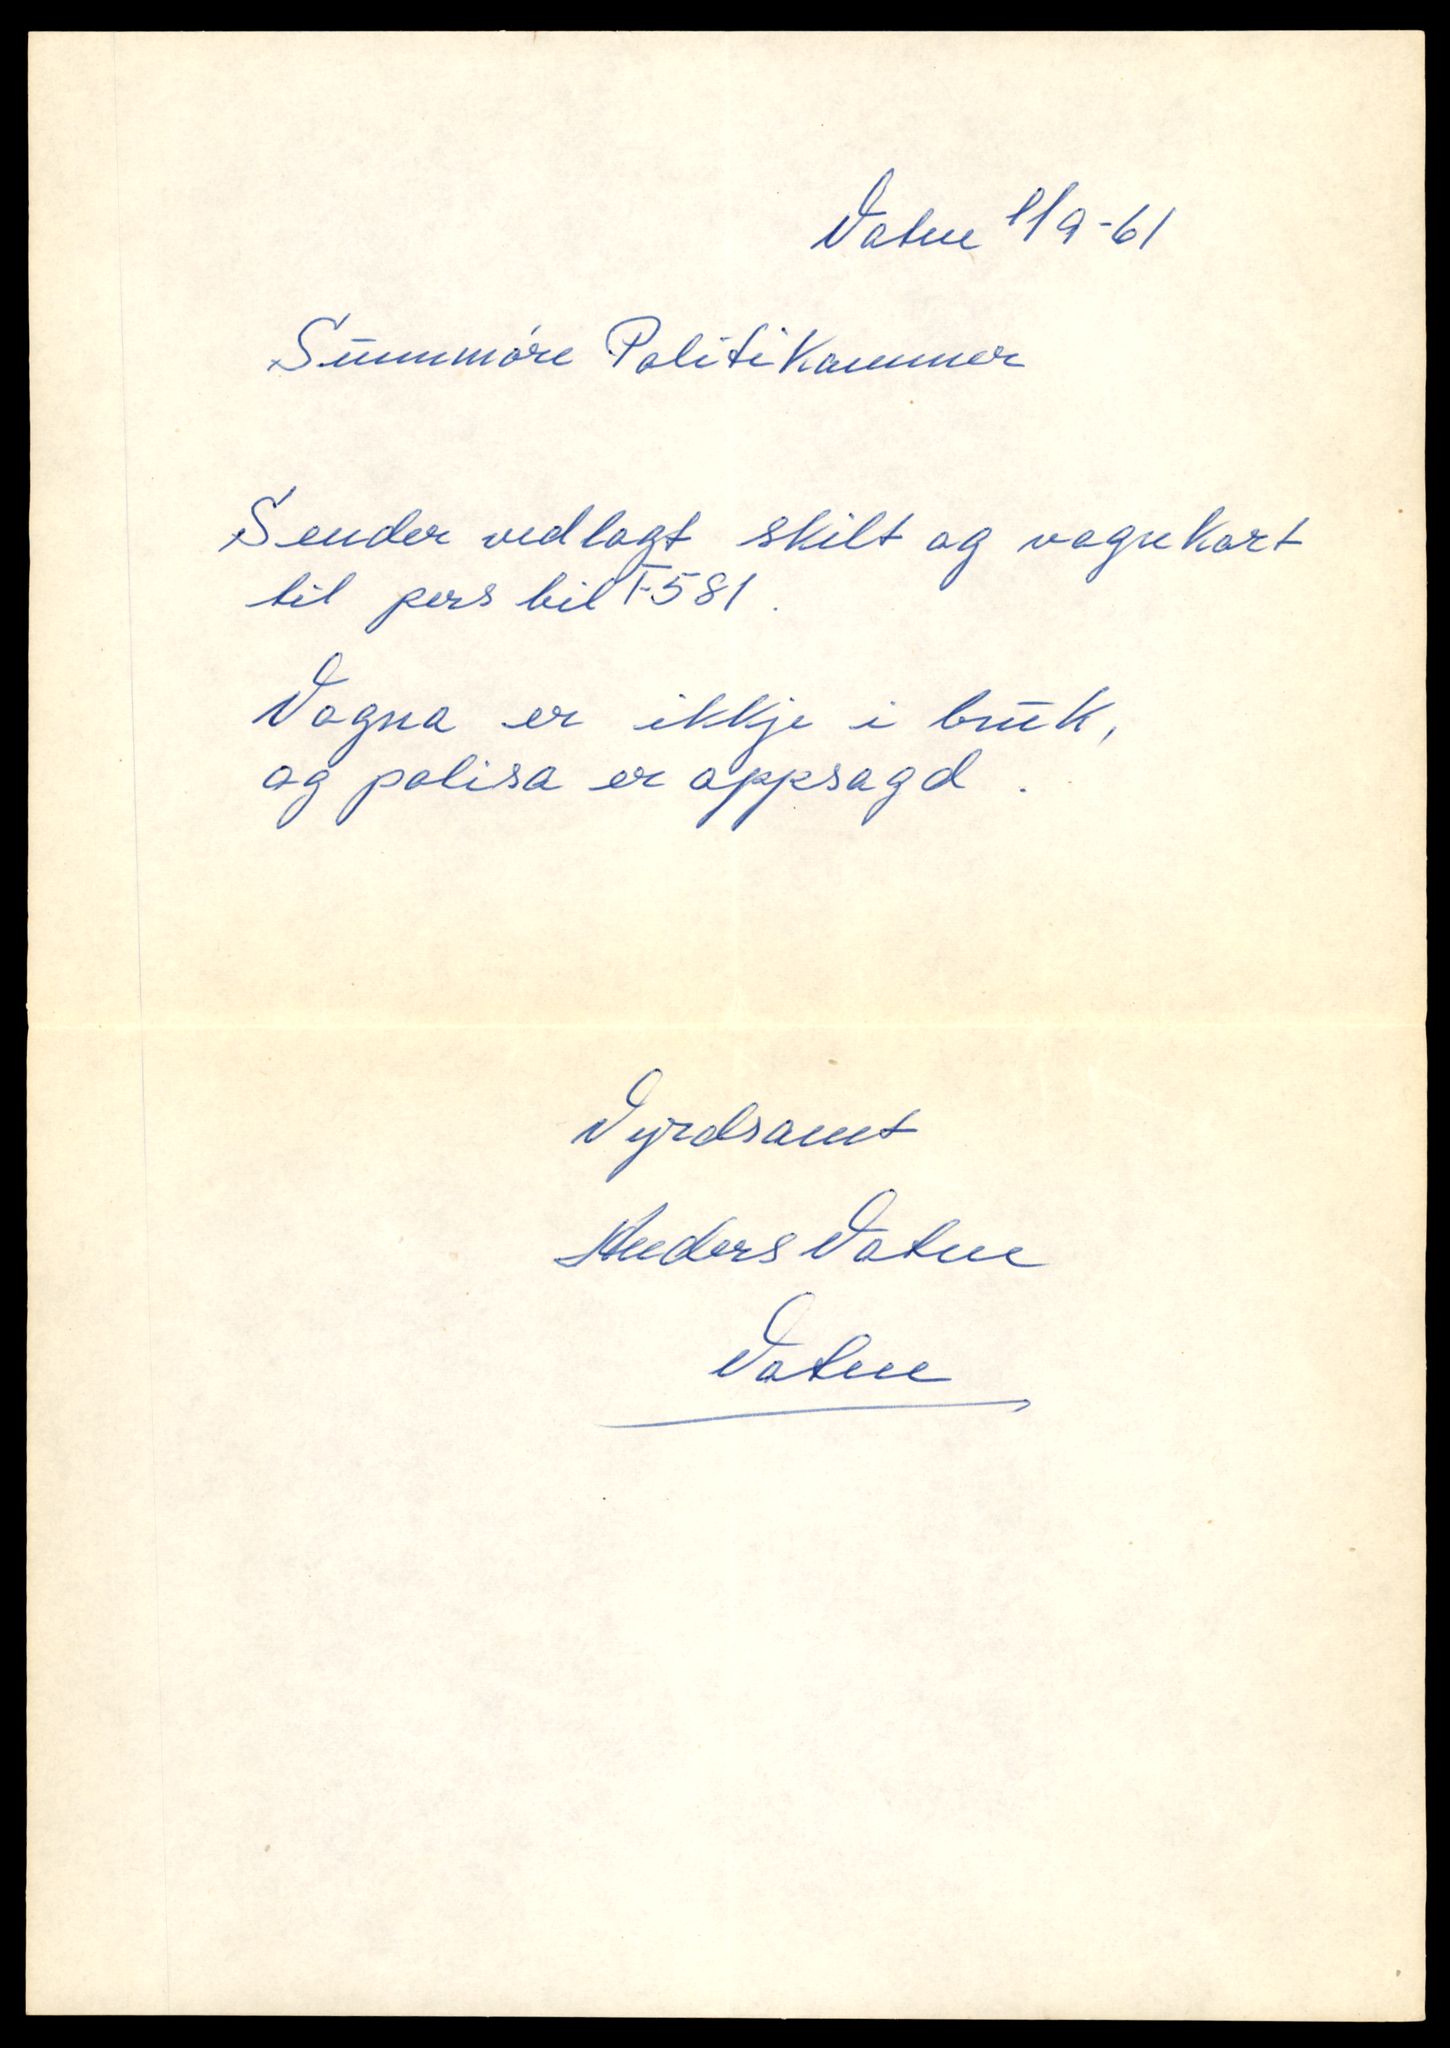 Vatne 11/9-61
Sunnmøre Politikammer
Sender vedlagt skilt og vognkort
til pers bil T-581.
Vogna er ikkje i bruk,
og polisa er oppsagd.
Vyrdsamt
Anders Vatne
Vatne